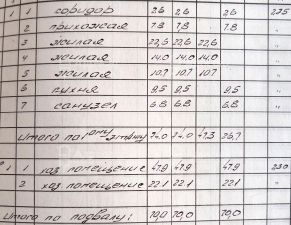 1 1 коридор 2,6 2,6 2,6 2,25
2 прихожая 7,8 7,8 7,8
3 жилая 22,6 22,6 22,6
4 жилая 14,0 14,0 14,0
5 жилая 10,7 10,7 10,7
6 кухня 9,5 9,5 9,5
7 санузел 6,8 6,8 6,8
Итого по 1 этажу 74,0 74,0 47,3 26,7
1 1 хоз помещение 47,9 47,9 47,9 2,30
2 хоз помещение 22,1 22,1 22,1
Итого по подвалу: 70,0 70,0 70,0